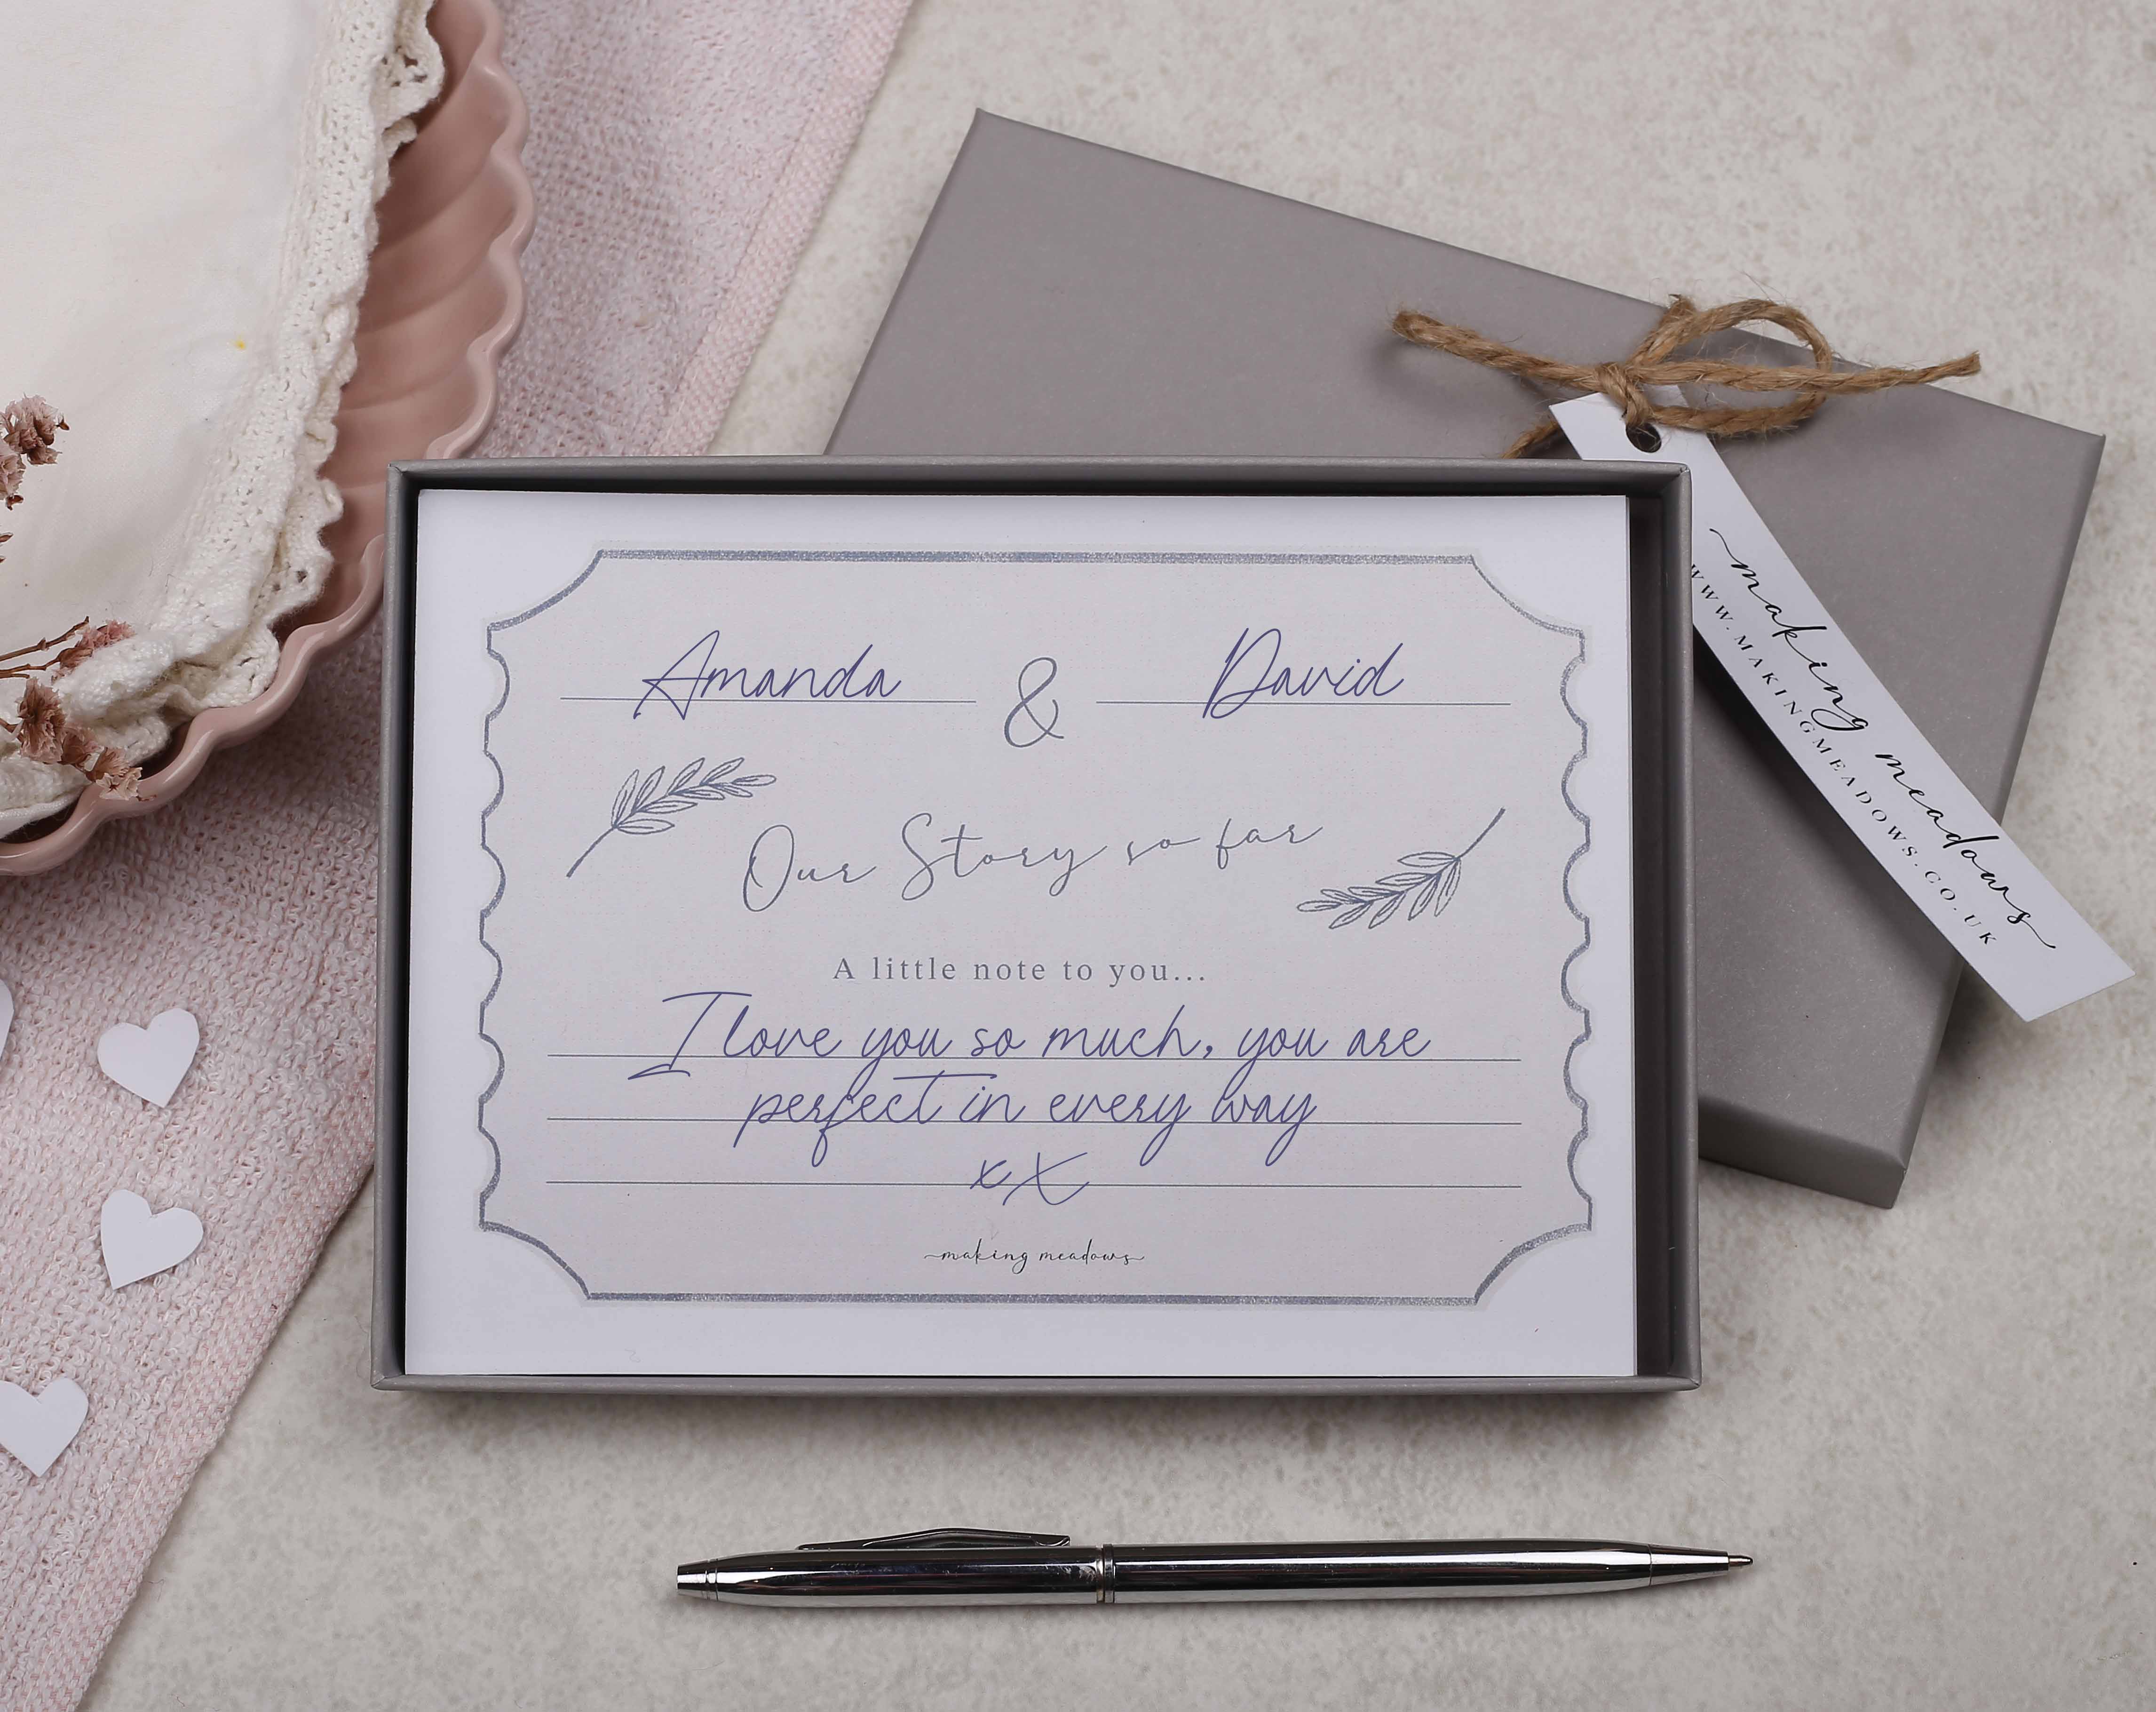 Amanda & David
Our Story so far
A little note to you...
I love you so much, you are
perfect in every way
xX
making meadows
making meadows
WWW.MAKINGMEADOWS.CO.UK